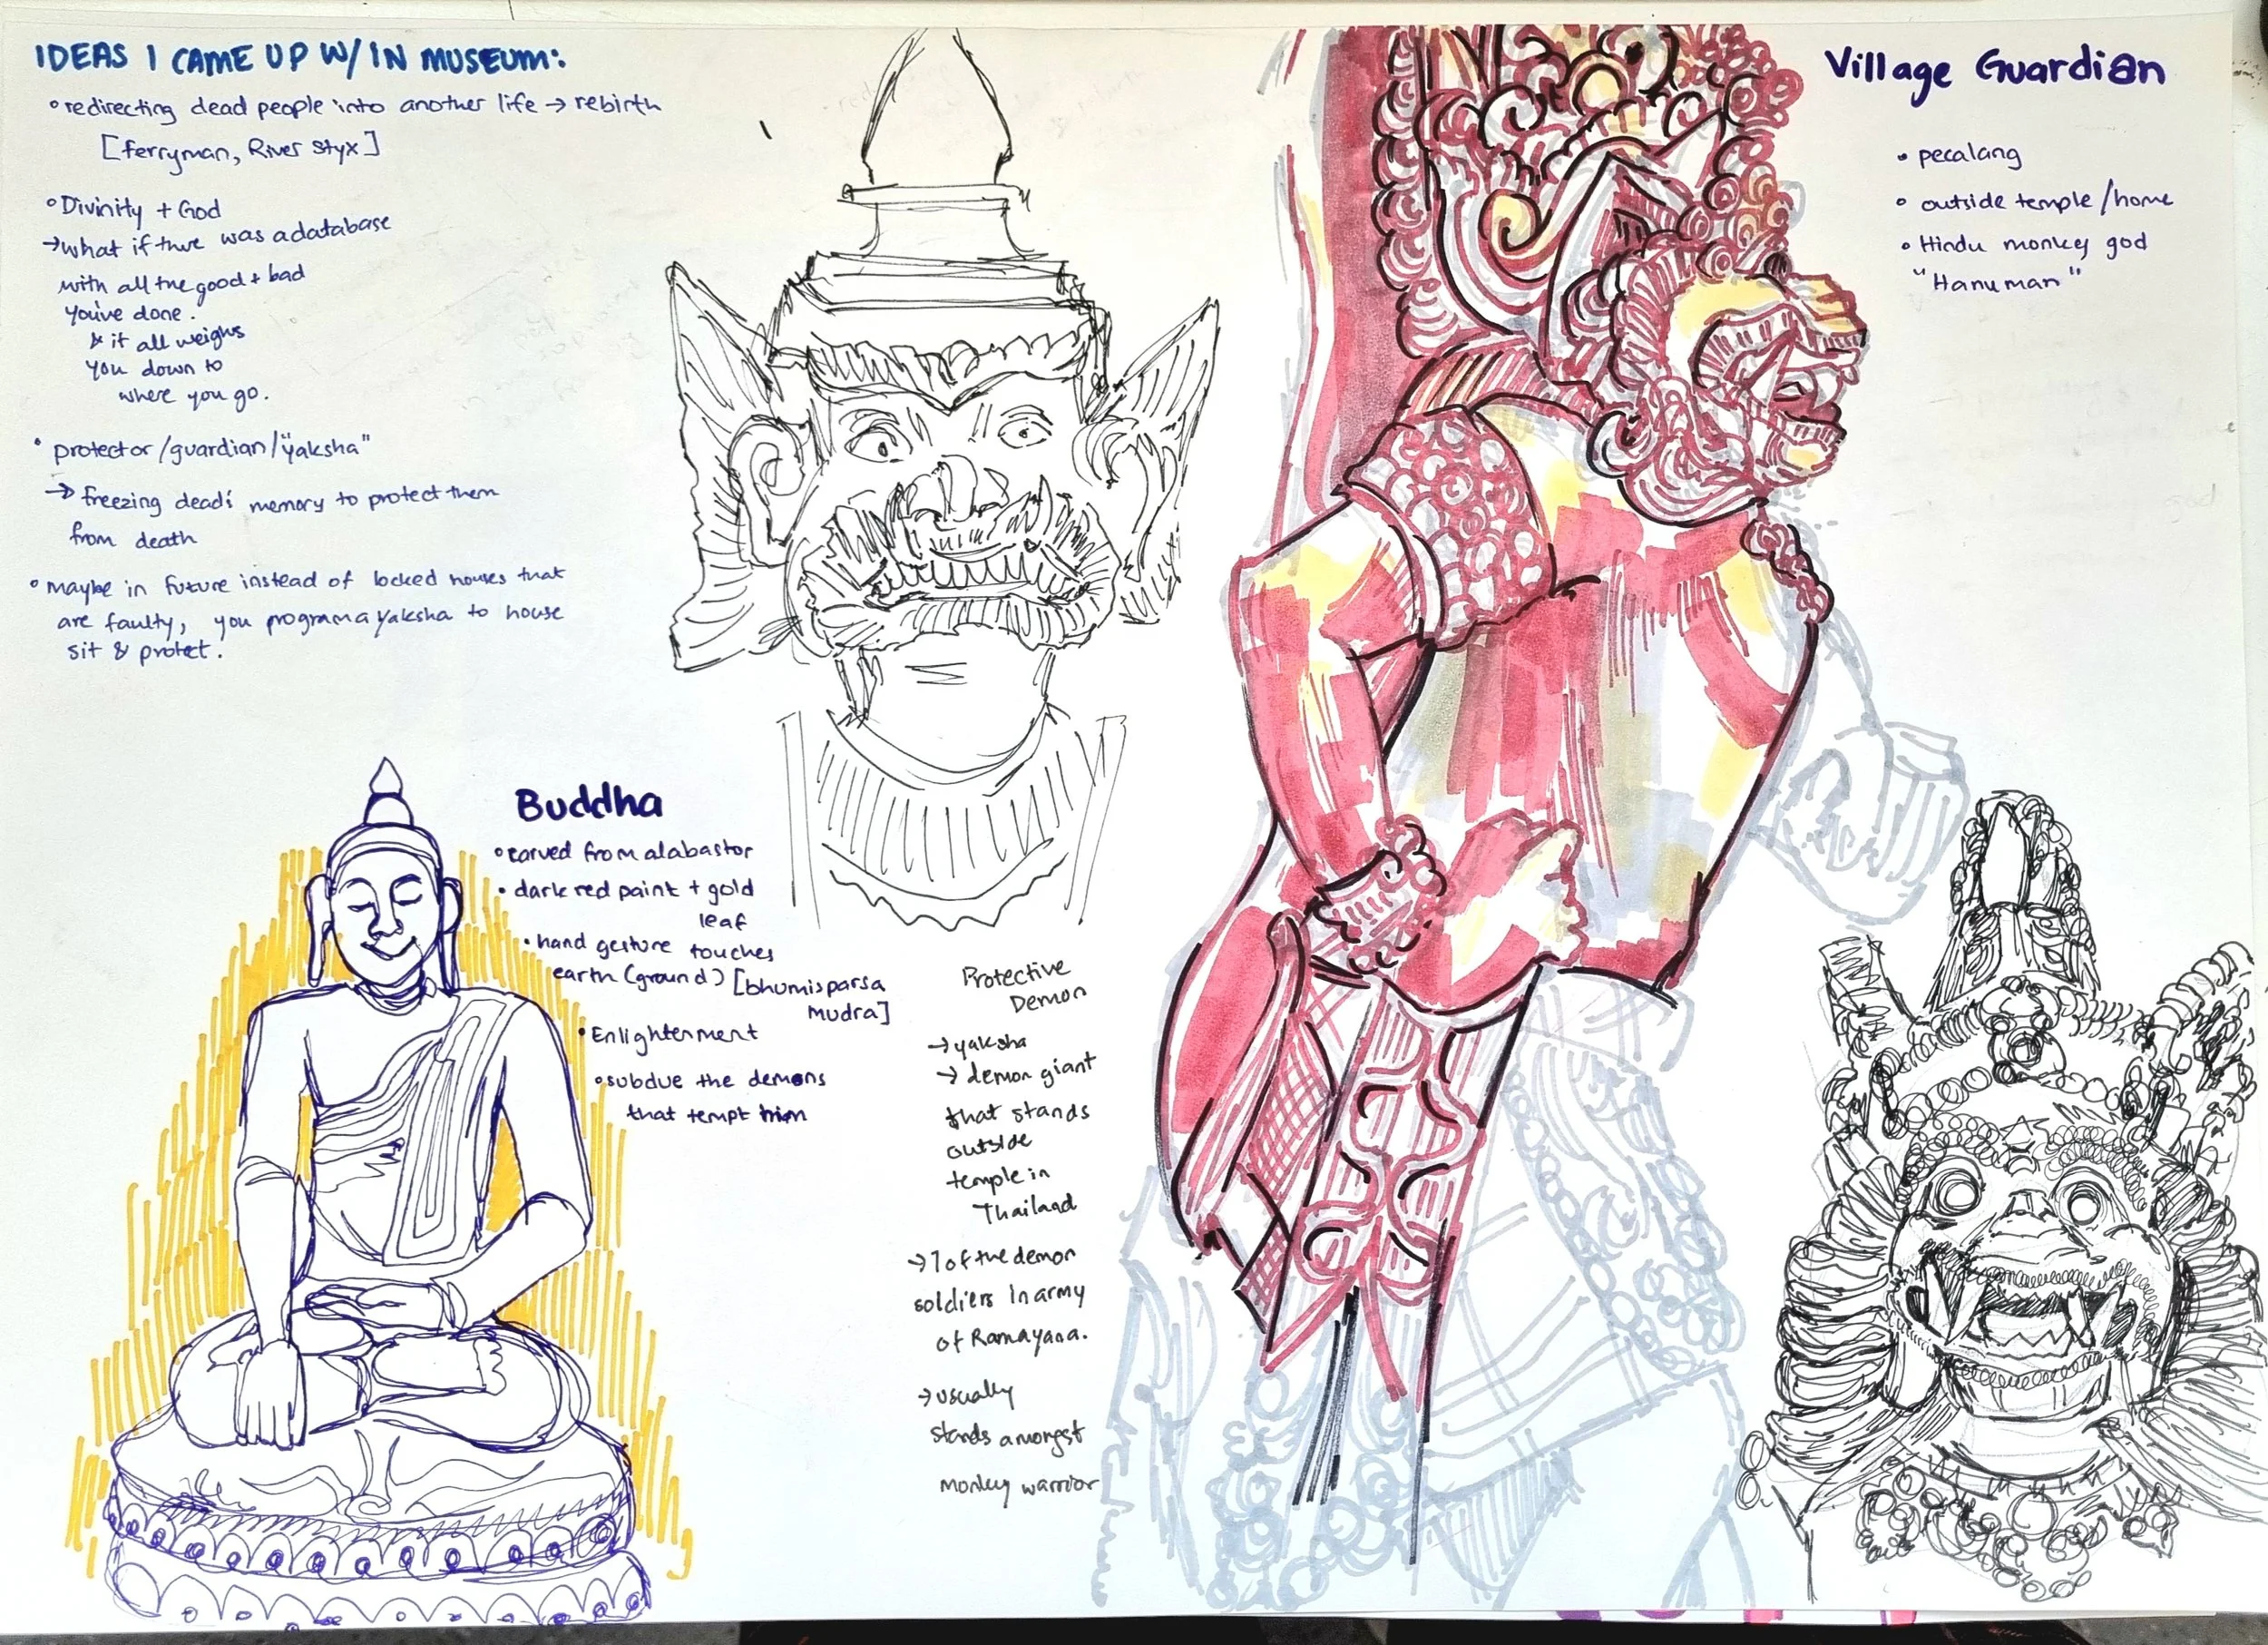 IDEAS I CAME UP W/ IN MUSEUM:
• redirecting dead people into another life → rebirth
[ferryman, River Styx]
• Divinity + God
→ what if there was a database
with all the good + bad
you've done.
& it all weighs
you down to
where you go.
• protector/guardian/"yaksha"
→ freezing dead's memory to protect them
from death
• maybe in future instead of locked houses that
are faulty, you program a yaksha to house
sit & protect.
Buddha
• carved from alabastor
• dark red paint + gold
leaf
• hand gesture touches
earth (ground) [bhumisparsa
mudra]
• Enlightenment
• subdue the demons
that tempt him
Protective
Demon
→ yaksha
→ demon giant
that stands
outside
temple in
Thailand
→ 1 of the demon
soldiers in army
of Ramayana.
→ usually
stands amongst
monkey warrior
Village Guardian
• pecalang
• outside temple/home
• Hindu monkey god
"Hanuman"